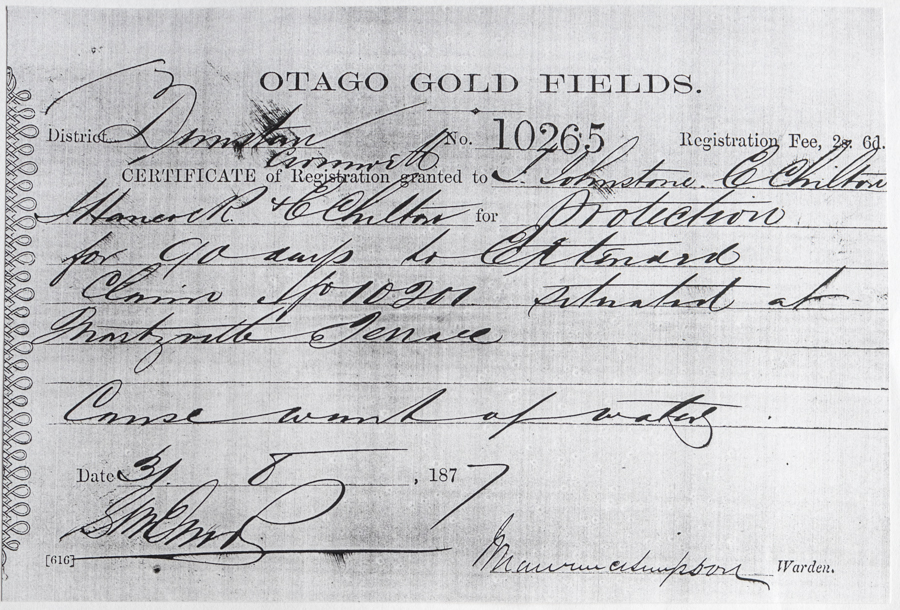 OTAGO GOLD FIELDS.
District Dunstan No. 10265 Registration Fee, 2s. 6d.
Cromwell
CERTIFICATE of Registration granted to J. Johnstone. E Chilton
J Hancock & E Chilton for Protection
for 90 days to Extended
Claim No 10201 situated at
Terrace
Cause want of water.
Date 31 8, 1877
[616] Warden.